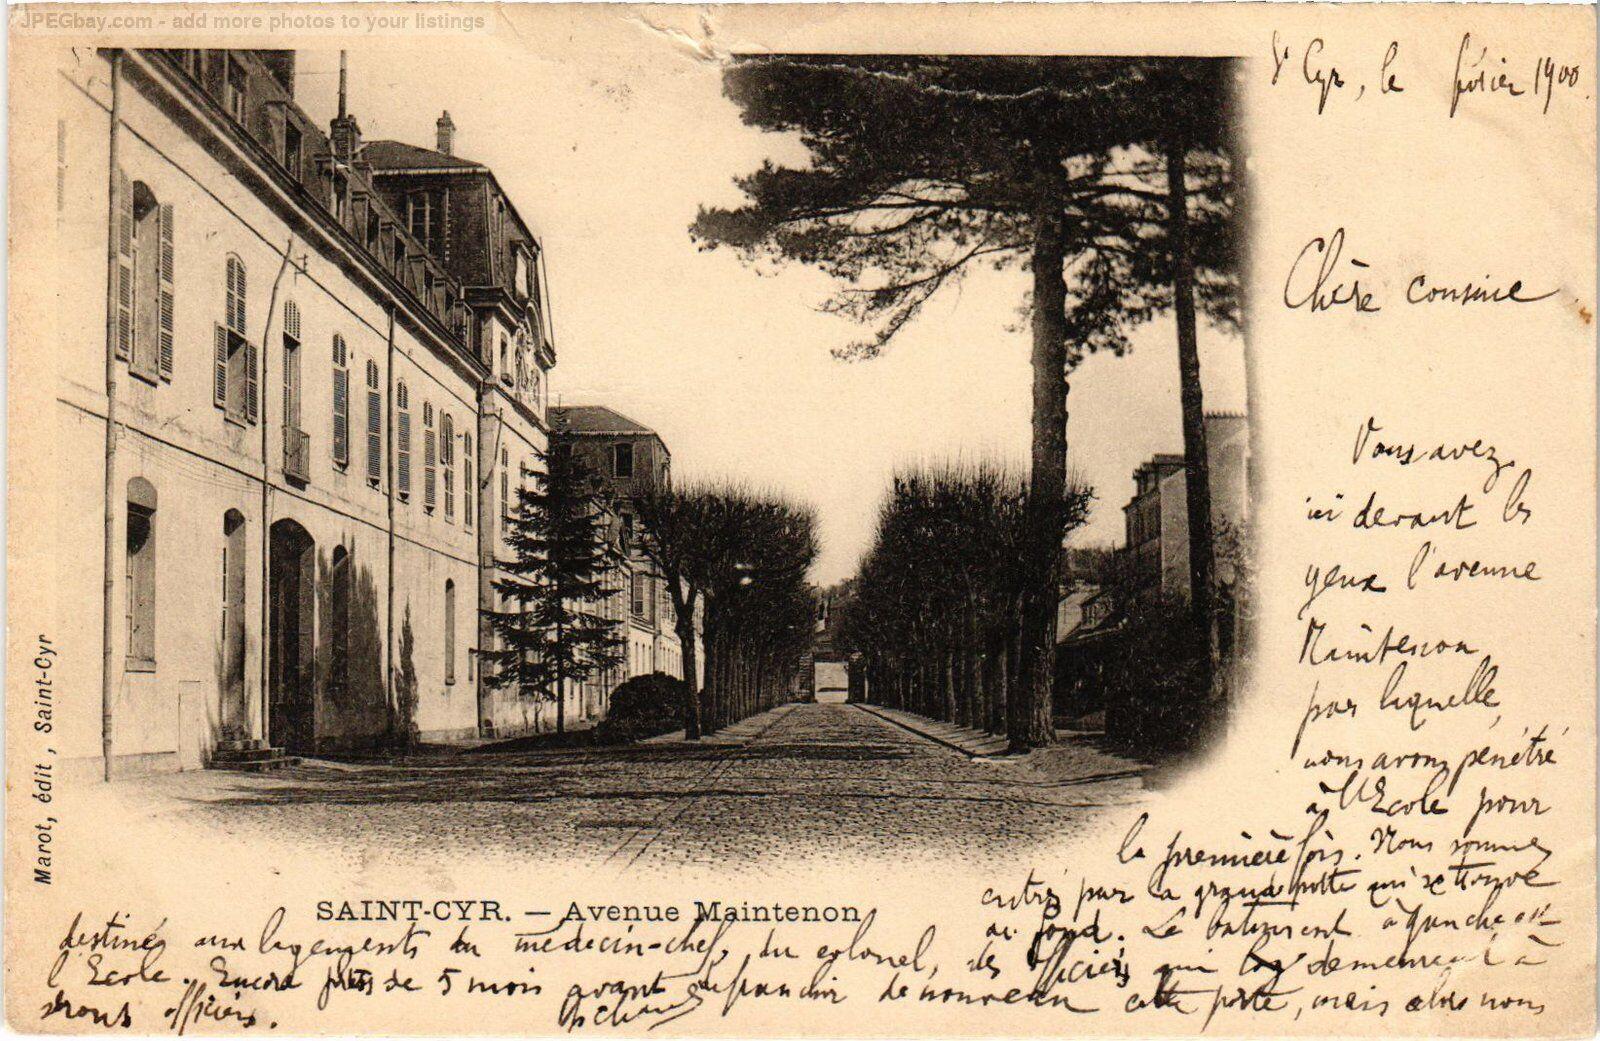 JPEGbay.com - add more photos to your listings
St Cyr, le février 1900.
Chère cousine
Vous avez
ici devant les
yeux l'avenue
Maintenon
par laquelle
nous avons pénétré
à l'Ecole pour
la première fois. Nous sommes
entrés par la grande porte qui se trouve
au fond. Le bâtiment à gauche est
destiné aux logements du médecin-chef, du colonel, des officiers qui demeurent à
l'Ecole. Encore près de 5 mois avant de franchir de nouveau cette porte, mais alors nous
serons officiers.
SAINT-CYR. — Avenue Maintenon
Marot, édit, Saint-Cyr